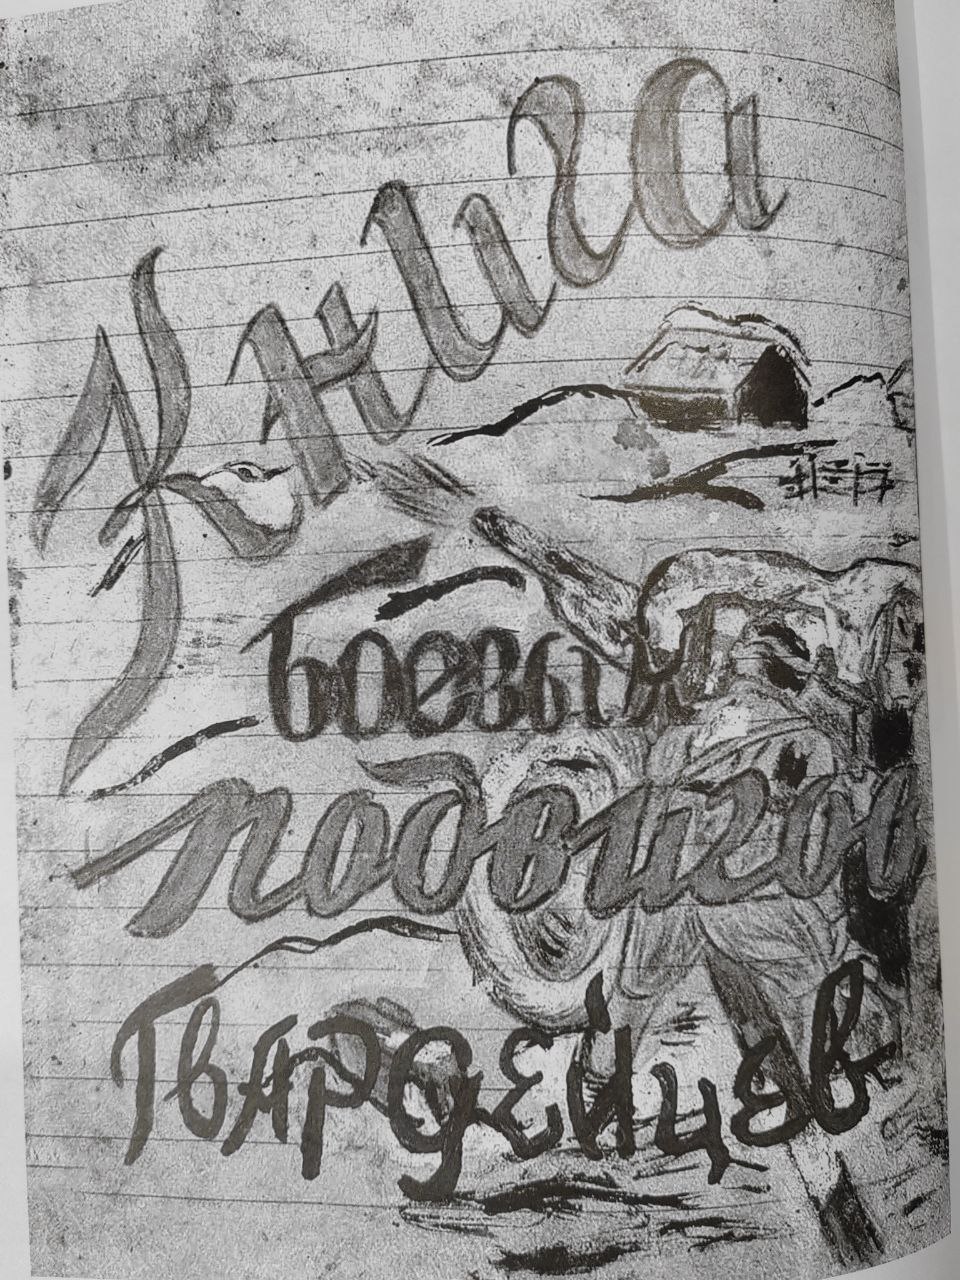 Книга
боевых
подвигов
Гвардейцев